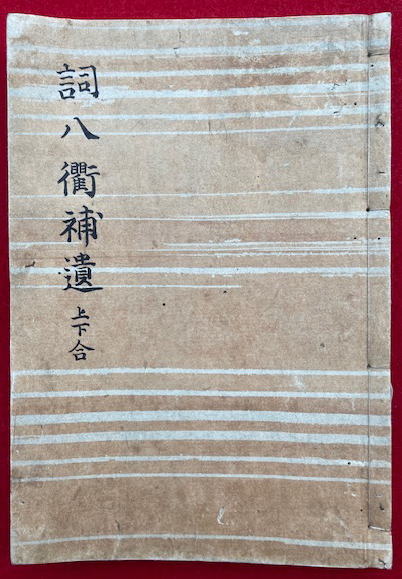 詞八衢補遺 上下合